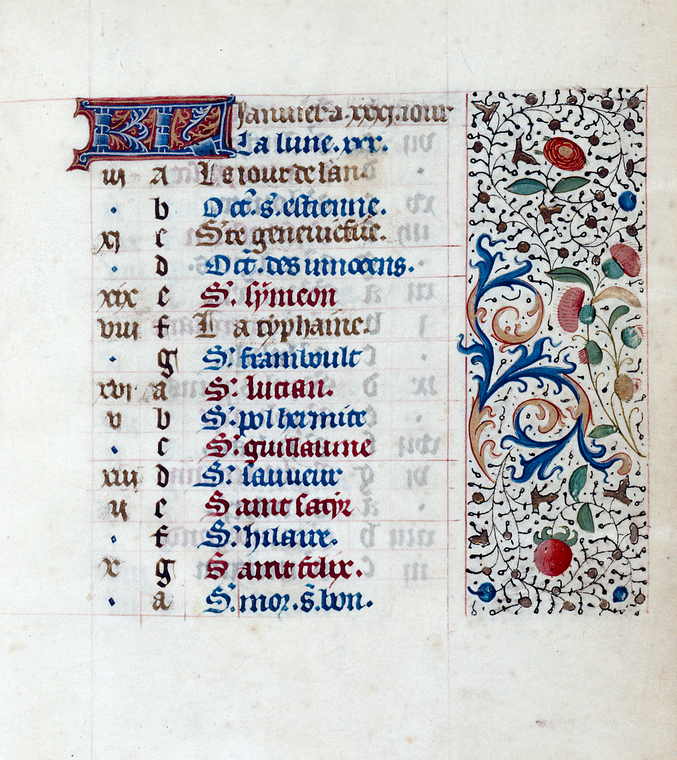 KL Januier a .xxxj. iour
La lune .xxx.
iij A Le iour de lan
. b Oct. s. estienne.
xj c Ste geneuiefue.
. d Oct. des innocens.
xix e S. symeon
viij f La typhaine.
. g S. framboult
xvj a S. lucian.
v b S. pol hermite
. c S. guillaume
xiij d S. sauueur
ij e Saint satyr
. f S. hilaire.
x g Saint felix.
. a S. mor. s. bon.